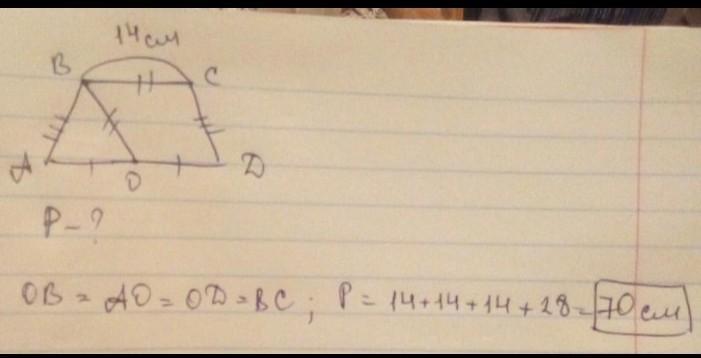 14 см
B C
A O D
P - ?
OB = AO = OD = BC ; P = 14+14+14+28 = 70 см